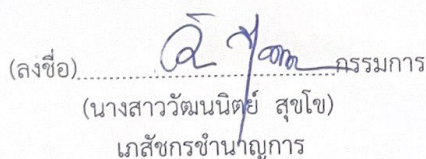 (ลงชื่อ)........................................กรรมการ
(นางสาววัฒนนิตย์ สุขโข)
เภสัชกรชำนาญการ